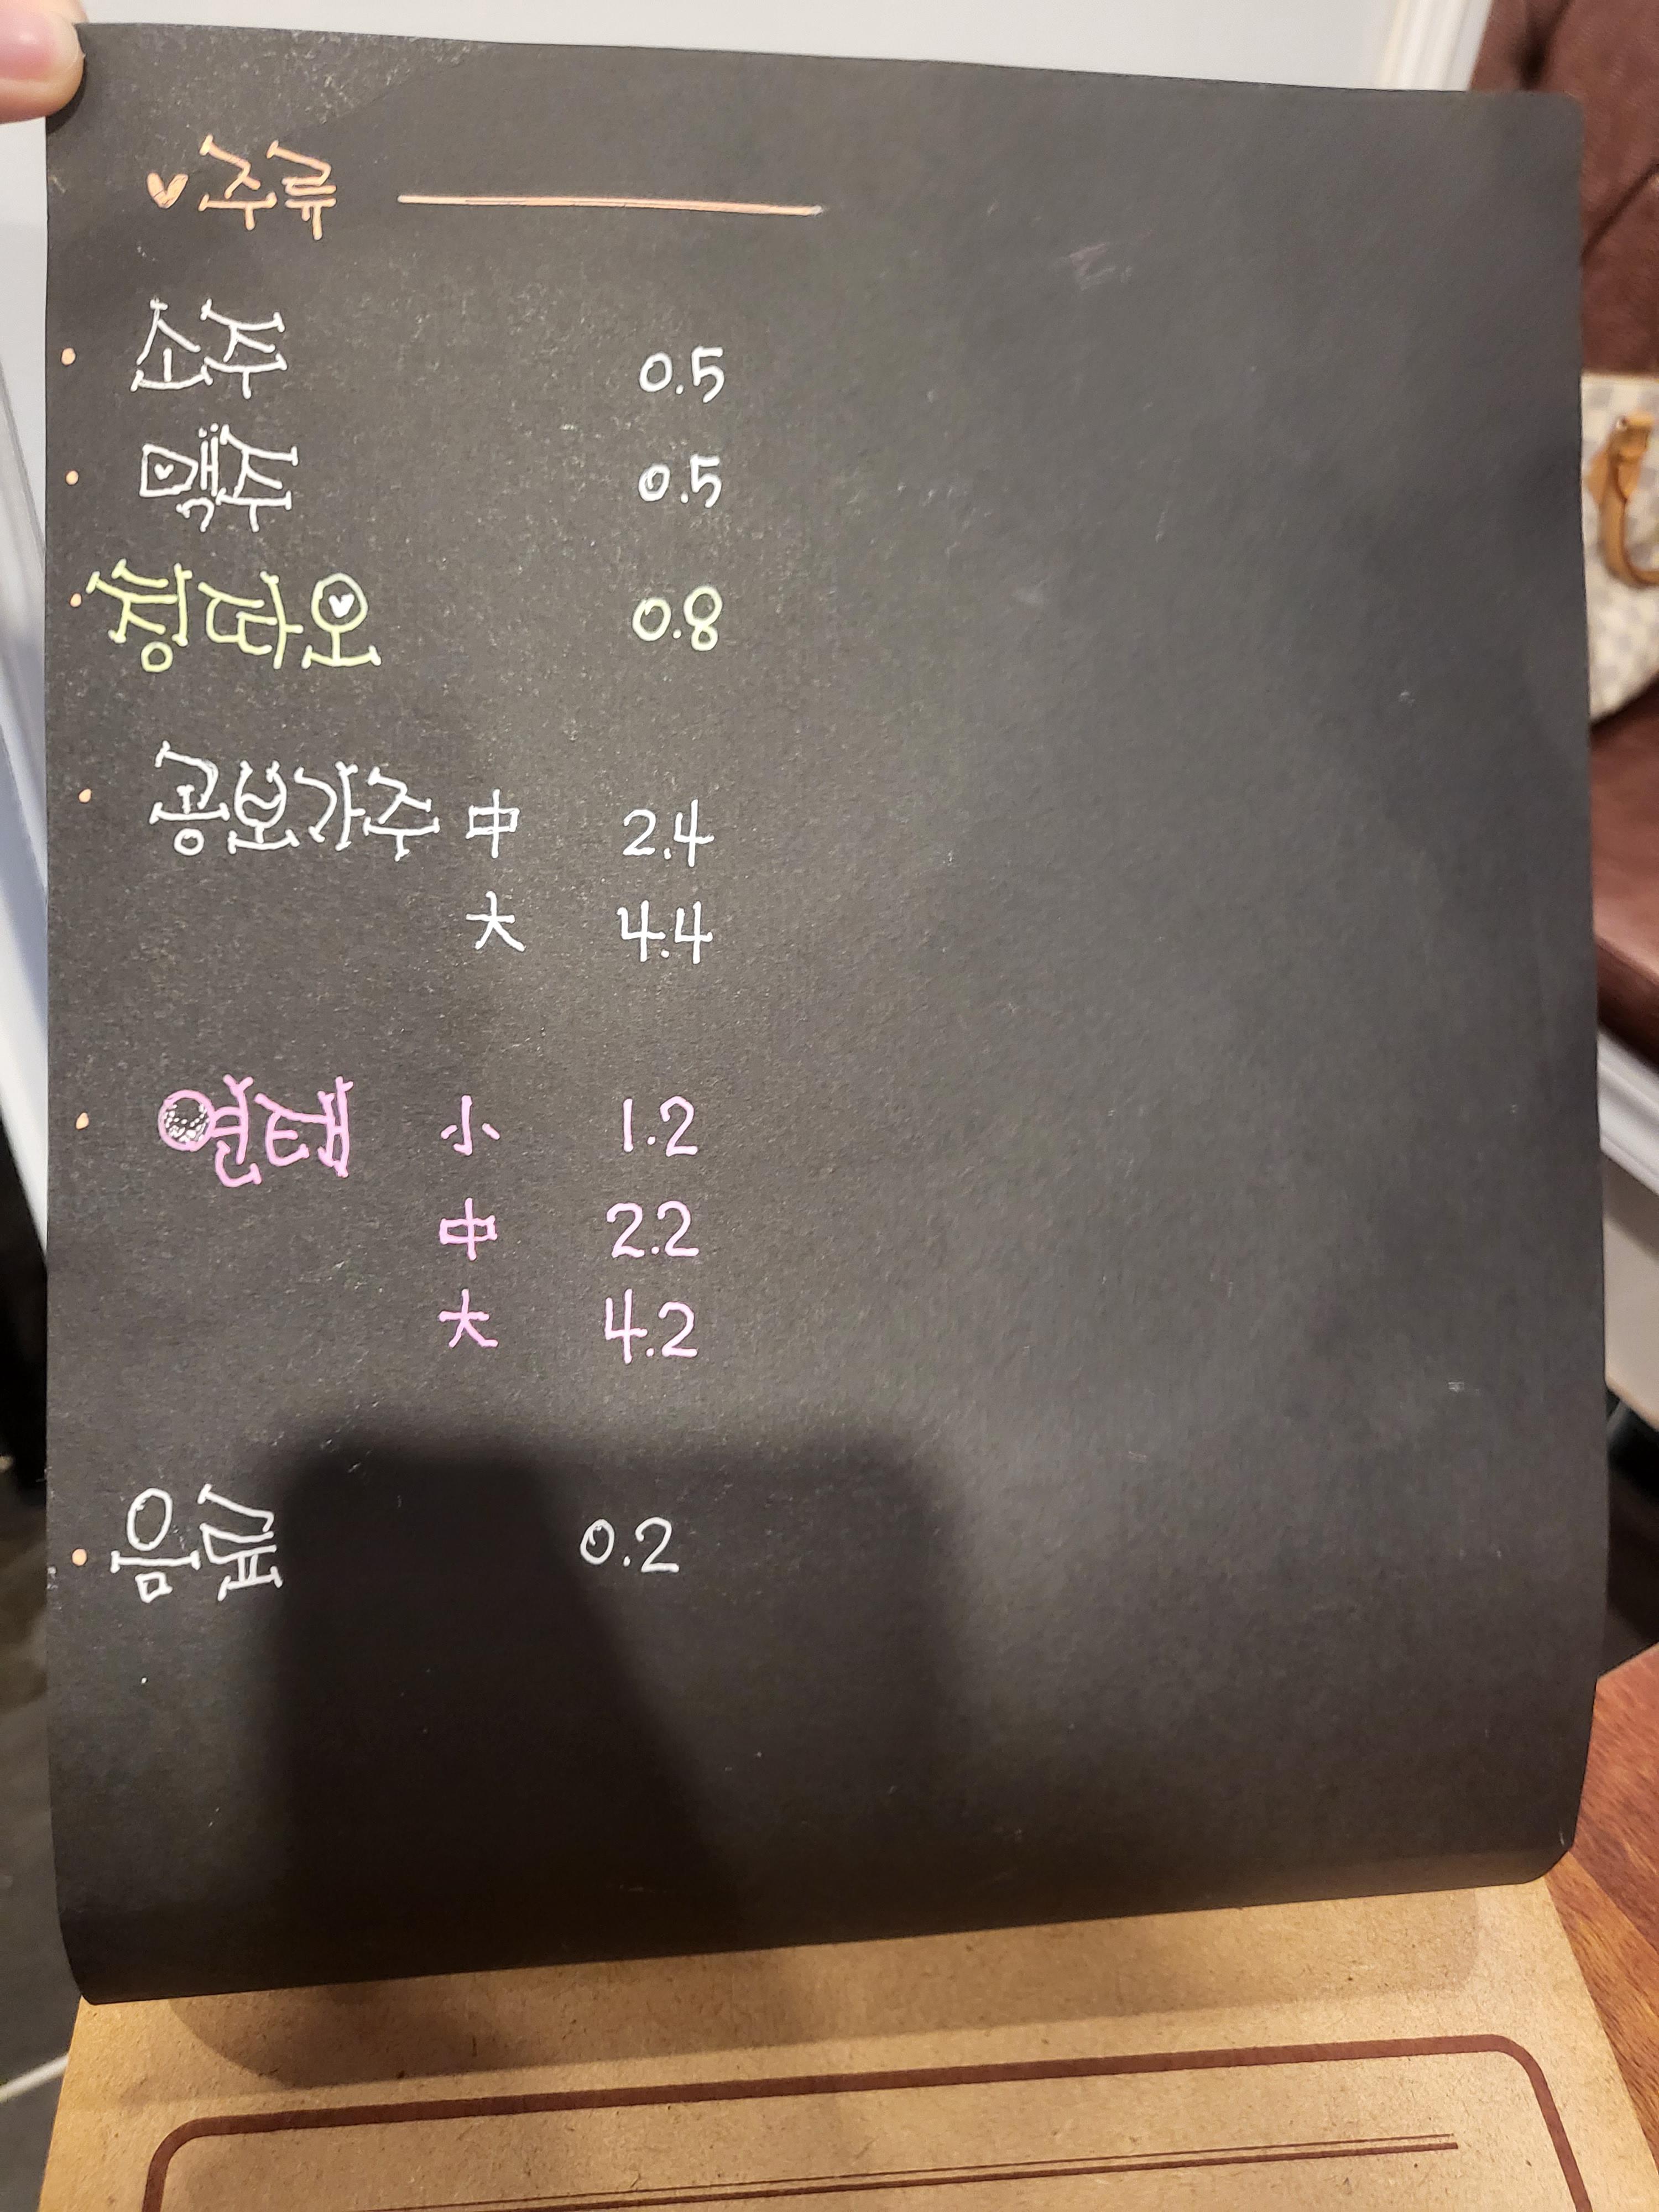 주류
소주 0.5
맥주 0.5
칭따오 0.8
공보가주 中 2.4
大 4.4
연태 小 1.2
中 2.2
大 4.2
음료 0.2